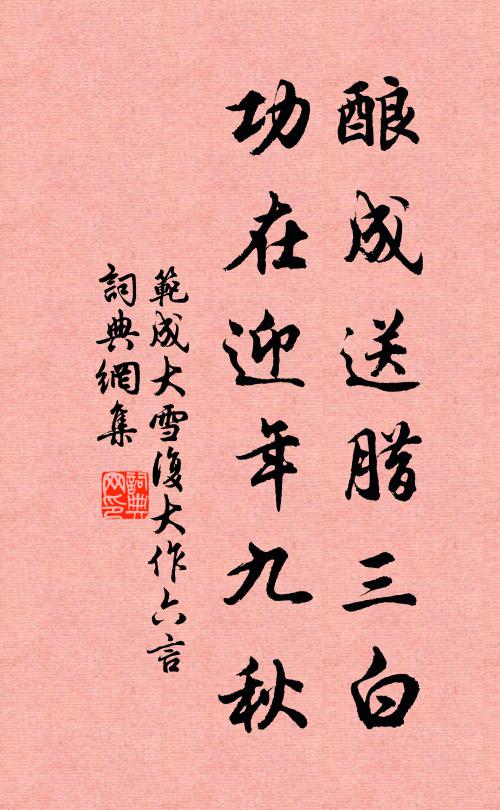 酿成送腊三白
功在迎年九秋
範成大雪復大作六言
詞典網集
詞典
网印